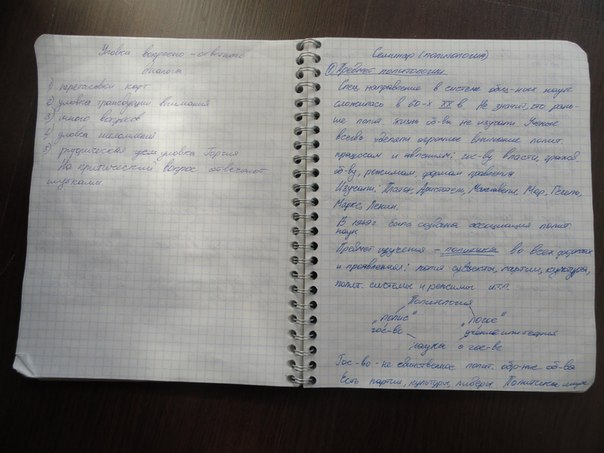 Уловка вопросно-ответного
диалога
1)
2) уловка трансдукции внимания
3) много вопросов
4) уловка
5) уловка Горгия
На критический вопрос отвечают
шутками
Семинар (политология)
① Предмет политологии.
Спец. направление в системе общ-ных наук
сложилась в 60-х XX в. Не значит, что рань-
ше полит. жизнь об-ва не изучали. Ученые
всегда уделяли огромное внимание полит.
процессам и явлениям: гос-ву, власти, гражд.
об-ву, режимам, формам правления
Изучали: Платон, Аристотель, Макиавели, Мор, Гегель,
Маркс, Ленин.
В 1949г. была создана ассоциация полит.
наук
Предмет изучения - политика во всех формах
и проявлениях: полит. субъекты, партии, культуры,
полит. системы и режимы и.т.п.
Политология
"полис" "логос"
гос-во учение или теория
наука о гос-ве
Гос-во - не единственное полит. обр-ние об-ва
Есть партии, культуры, лидеры. Политика